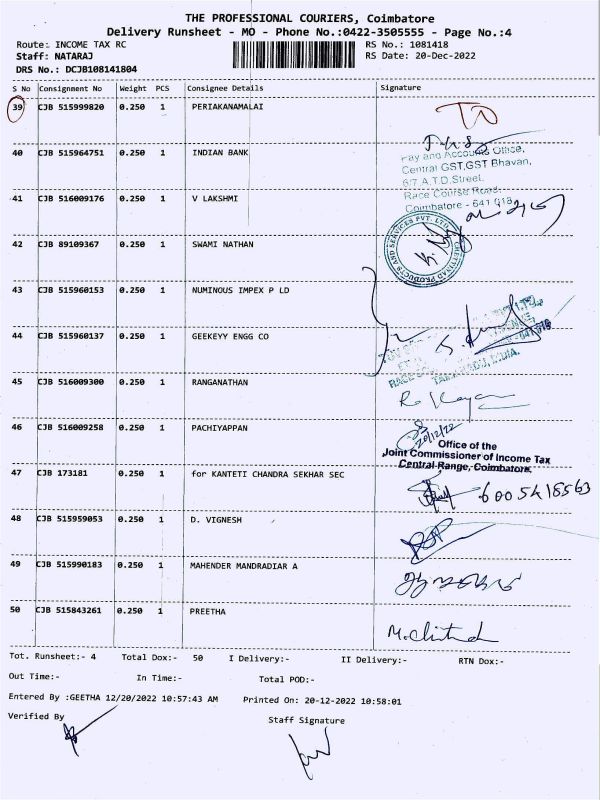 THE PROFESSIONAL COURIERS, Coimbatore
Delivery Runsheet - MO - Phone No.:0422-3505555 - Page No.:4
Route: INCOME TAX RC RS No.: 1081418
Staff: NATARAJ RS Date: 20-Dec-2022
DRS No.: DCJB108141804
S No Consignment No Weight PCS Consignee Details Signature
39 CJB 515999820 0.250 1 PERIAKANAMALAI
40 CJB 515964751 0.250 1 INDIAN BANK
Pay and Accounts Office,
Central GST,GST Bhavan,
6/7,A.T.D.Street,
Race Course Road,
Coimbatore - 641 018
41 CJB 516009176 0.250 1 V LAKSHMI
42 CJB 89109367 0.250 1 SWAMI NATHAN
CHETTINAD PRODUCTS AND SERVICES PVT. LTD
43 CJB 515960153 0.250 1 NUMINOUS IMPEX P LD
44 CJB 515960137 0.250 1 GEEKEYY ENGG CO
45 CJB 516009300 0.250 1 RANGANATHAN
46 CJB 516009258 0.250 1 PACHIYAPPAN
20/12/22
Office of the
Joint Commissioner of Income Tax
Central Range, Coimbatore.
47 CJB 173181 0.250 1 for KANTETI CHANDRA SEKHAR SEC
48 CJB 515959053 0.250 1 D. VIGNESH
49 CJB 515990183 0.250 1 MAHENDER MANDRADIAR A
50 CJB 515843261 0.250 1 PREETHA
Tot. Runsheet:- 4 Total Dox:- 50 I Delivery:- II Delivery:- RTN Dox:-
Out Time:- In Time:- Total POD:-
Entered By :GEETHA 12/20/2022 10:57:43 AM Printed On: 20-12-2022 10:58:01
Verified By Staff Signature